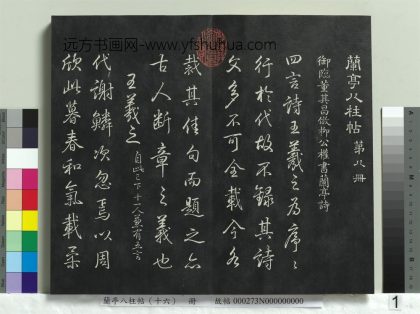 远方书画网-www.yfshuhua.com
蘭亭八柱帖第八冊
御臨董其昌倣柳公權書蘭亭詩
四言詩王羲之為序序
行於代故不錄其詩
文多不可全載今各
裁其佳句而題之亦
古人斷章之義也
王羲之自此已下十一人兼有五言
代謝鱗次忽焉以周
欣此暮春和氣載柔
蘭亭八柱帖(十六) 冊 故帖 000273N000000000
1